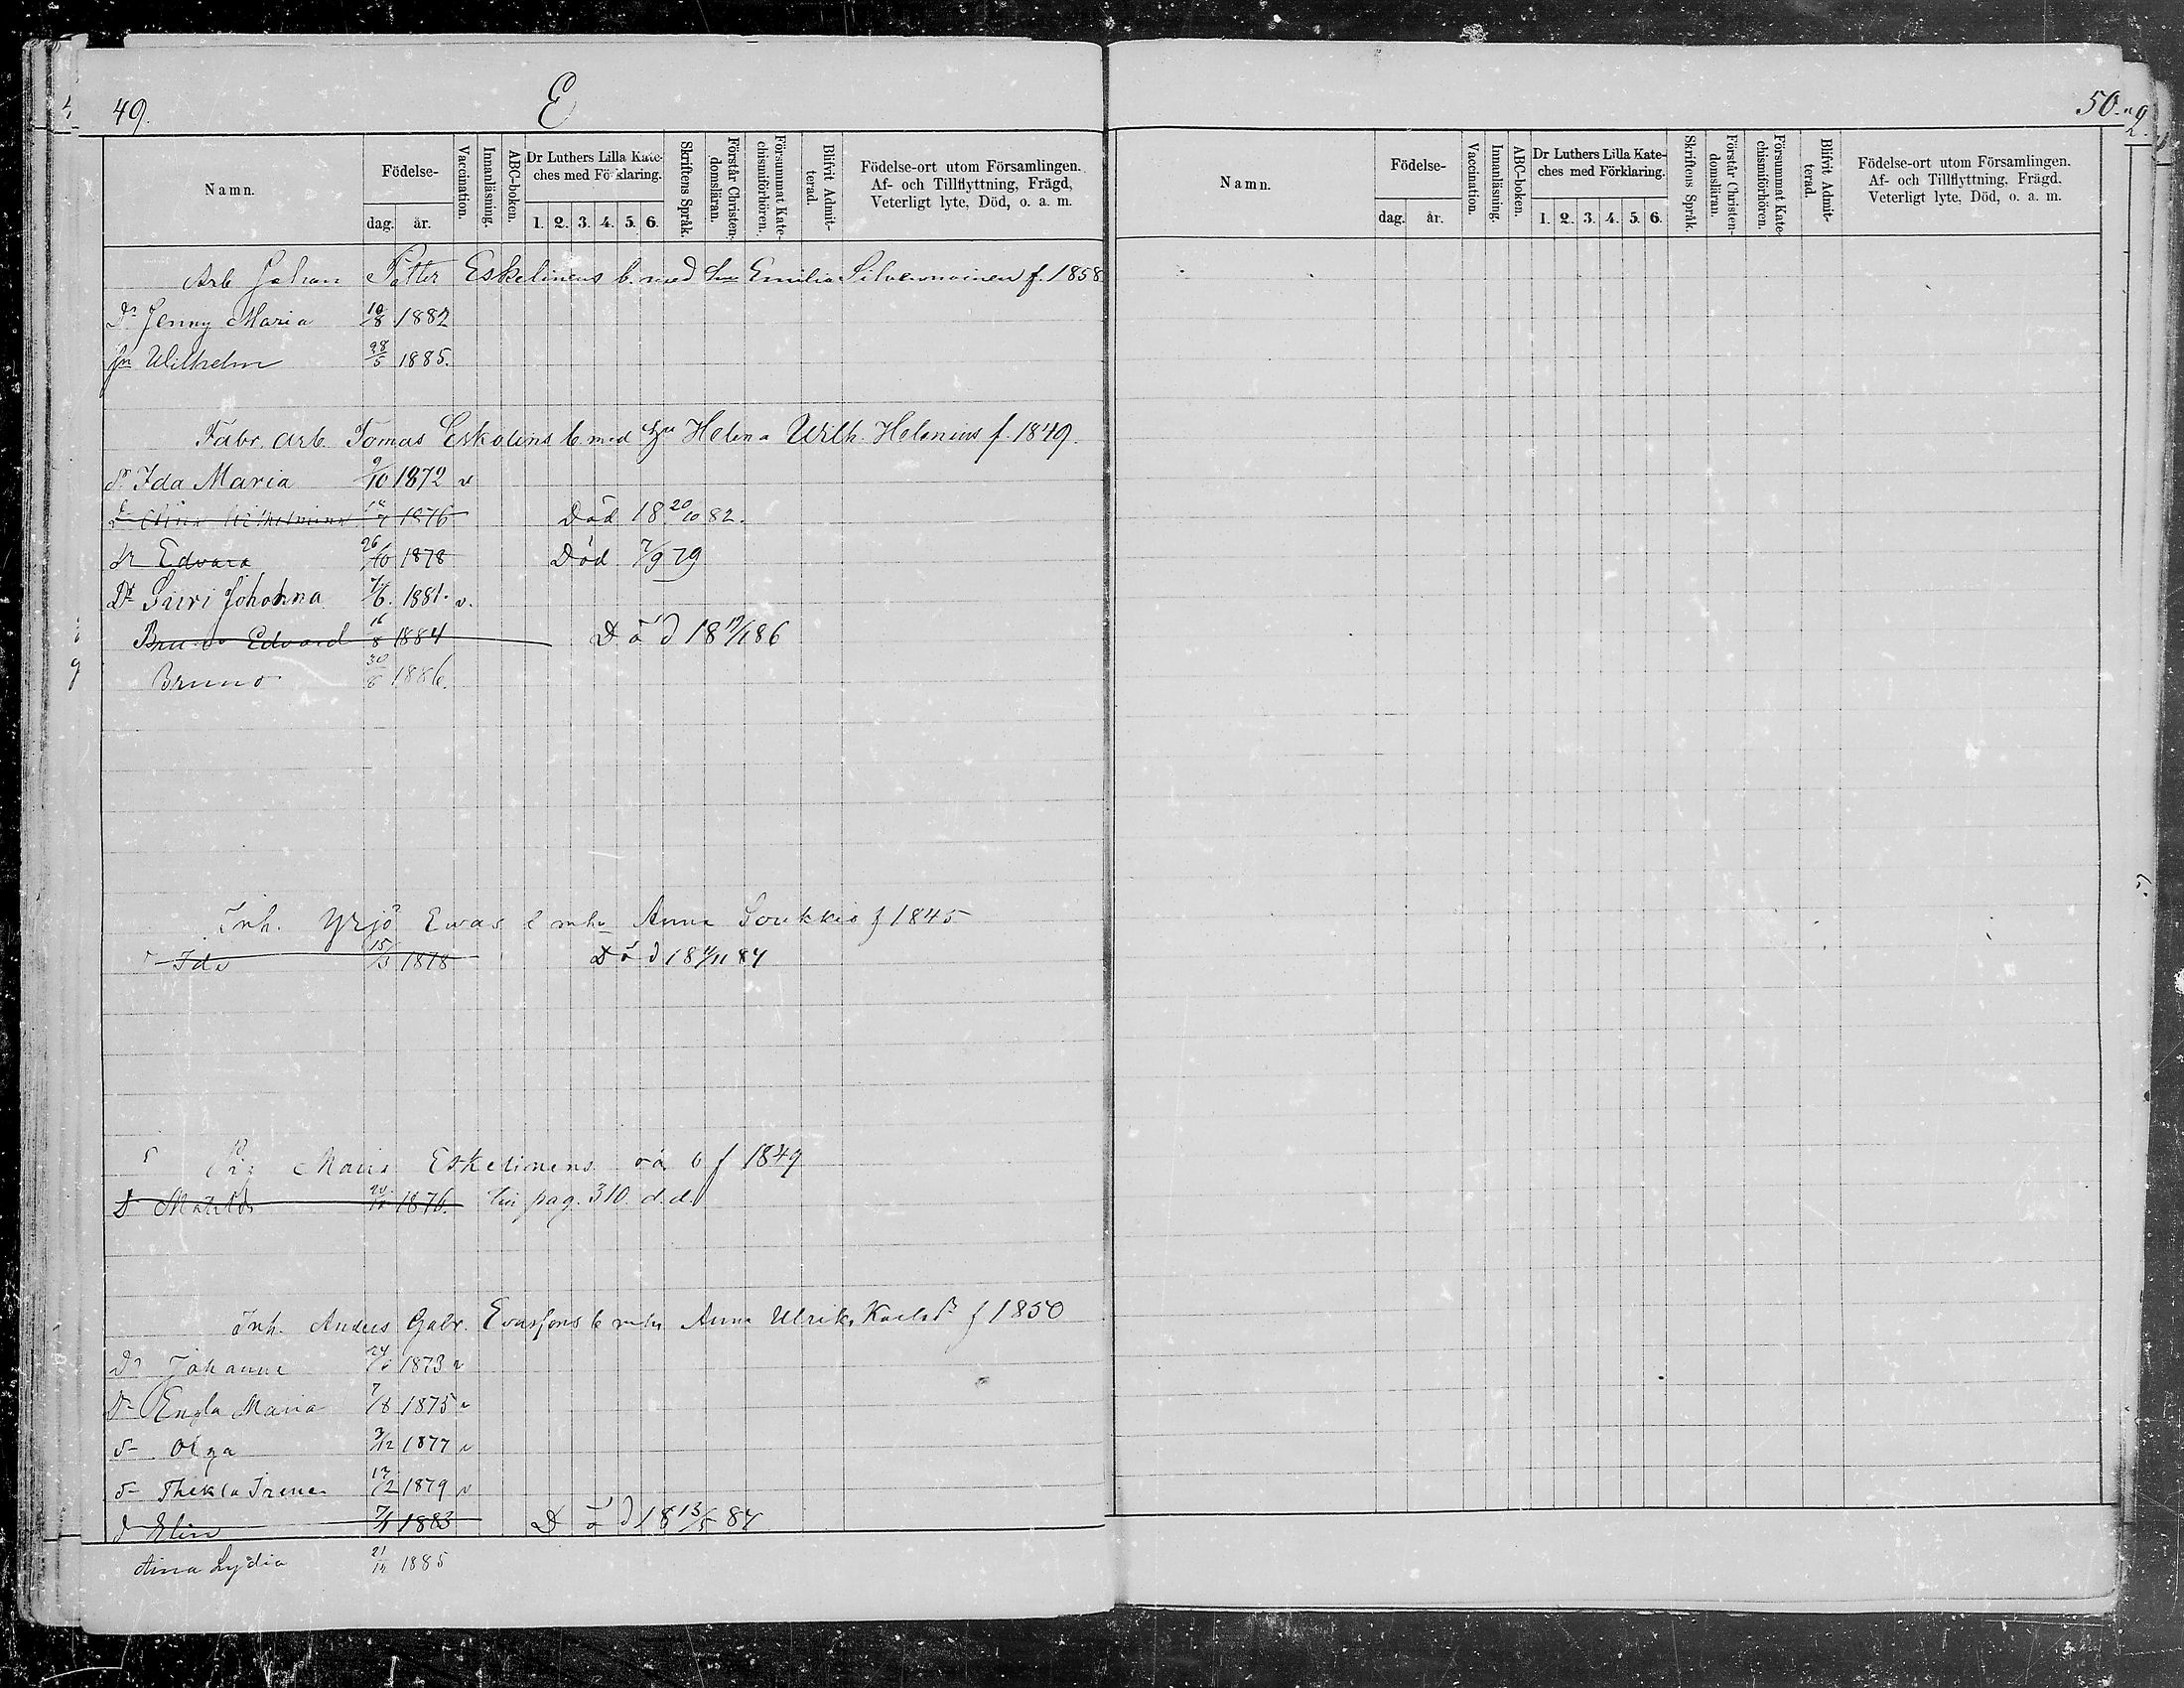 49.
E
Namn.
Födelse-
dag. år.
Vaccination.
Innanläsning.
ABC-boken.
Dr Luthers Lilla Kate-
ches med Fö klaring.
1. 2. 3. 4. 5. 6.
Skriftens Språk.
Förstår Christen-
domsläran.
Försummat Kate-
chismiförhören.
Blifvit Admit-
terad.
Födelse-ort utom Församlingen.
Af- och Tillflyttning, Frägd,
Veterligt lyte, Död, o. a. m.
Arb Johan Petter Eskelinens b. med Emilia f. 1858
Dr Jenny Maria 10/8 1882
Wilhelm 28/5 1885.
Fabr. arb. Tomas Eskolins b med Helena Wilh. Helenius f. 1849.
Dr Ida Maria 9/10 1872 v
Wilhelmina 1876 Död 18 20/10 82.
Edvard 26/10 1878 Död 7/9 79
Dr Siiri Johanna 1881. v.
Bruno Edvard 16/8 1884 Död 18 86
Bruno 30/8 1886.
Inh. Yrjö Ewas b mhu Anna Soukkio f 1845
Ida 15/3 1878 Död 18 84
Pig Maria Eskelinens oä b f 1849
D Matilda 1876. pag. 310. d.d.
Inh. Anders Gabr. Evassons b mhu Anna Ulrika Karlsdr f 1850
Dr Johanna 1873 v
Dr Engla Maria 7/8 1875 v
Olga 3/12 1877 v
Thekla Irene 17/2 1879 v
Elin 1883 Död 18 13/5 84
Aina Lydia 1885
50.
Namn.
Födelse-
dag. år.
Vaccination.
Innanläsning.
ABC-boken.
Dr Luthers Lilla Kate-
ches med Förklaring.
1. 2. 3. 4. 5. 6.
Skriftens Språk.
Förstår Christen-
domsläran.
Försummat Kate-
chismiförhören.
Blifvit Admit-
terad.
Födelse-ort utom Församlingen.
Af- och Tillflyttning, Frägd.
Veterligt lyte, Död, o. a. m.